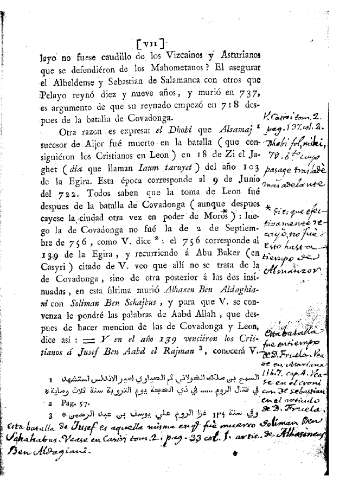 [ VII ]
layo no fuese caudillo de los Vizcainos y Asturianos
que se defendiéron de los Mahometanos? El asegurar
el Albeldense y Sebastian de Salamanca con otros que
Pelayo reynó diez y nueve años, y murió en 737,
es argumento de que su reynado empezó en 718 des-
pues de la batalla de Covadonga.
Otra razon es expresar el Dhobi que Alsamaj
sucesor de Aljor fué muerto en la batalla (que con-
siguiéron los Cristianos en Leon) en 18 de Zil el Ja-
ghet (dia que llaman Laum taruyet) del año 103
de la Egira. Esta época corresponde al 9 de Junio
del 722. Todos saben que la toma de Leon fué
despues de la batalla de Covadonga (aunque despues
cayese la ciudad otra vez en poder de Moros): lue-
go la de Covadonga no fué la de 2 de Setiem-
bre de 756, como V. dice ²: el 756 corresponde al
139 de la Egira, y recurriendo á Abu Baker (en
Casyri) citado de V. veo que allí no se trata de la
de Covadonga, sino de otra posterior á las dos insi-
nuadas, en esta última murió Alhasen Ben Aldaghia-
ni con Soliman Ben Schajtus, y para que V. se con-
venza le pondré las palabras de Aabd Allah, que des-
pues de hacer mencion de las de Covadonga y Leon,
dice así: = Y en el año 139 venciéron los Cris-
tianos á Jusef Ben Aabd el Rajman ³, conocerá V.
1 السمح بن مالك الخولاني ثم الاندلس استشهد
في قتال الروم
2 Pag. 57.
3 وفي سنة ١٣٩ غزا الروم علي يوسف بن عبد الرحمن
V. Casiri tom. 2.
pag. 137. col. 2.
Dhobi fol.
cuyo
pasage trasladé
mas adelante
* Sí es que efec-
tivamente se
cayó, no fué
esto hasta el
tiempo de
Almanzor.
Esta batalla
fué en tiempo
de D. Fruela.
de Sebastian
en el articulo
de D. Fruela.
esta batalla de Jusef es aquella misma en q.e fué muerto Soliman Ben
Schahabus. Vease en Casiri tom. 2. pag. 33 col. 1. artic. de Alhasinus
Ben Aldagiani.